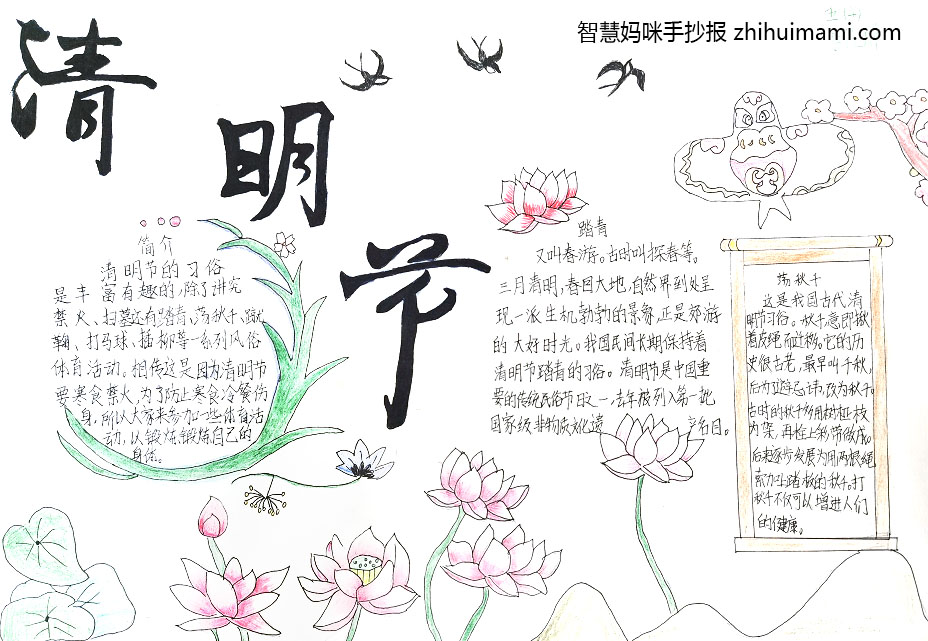 智慧妈咪手抄报 zhihuimami.com
清
明
节
简介
清明节的习俗
是丰富有趣的,除了讲究
禁火、扫墓还有踏青、荡秋千、蹴
鞠、打马球、插柳等一系列风俗
体育活动。相传这是因为清明节
要寒食禁火,为了防止寒食冷餐伤
身,所以大家来参加一些体育活
动,以锻炼锻炼自己的
身体。
踏青
又叫春游。古时叫探春等。
三月清明,春回大地,自然界到处呈
现一派生机勃勃的景象,正是郊游
的大好时光。我国民间长期保持着
清明节踏青的习俗。清明节是中国重
要的传统民俗节日之一,去年被列入第一批
国家级非物质文化遗产名目。
荡秋千
这是我国古代清
明节习俗。秋千意即揪
着皮绳而迁移。它的历
史很古老,最早叫千秋,
后为避忌讳,改为秋千。
古时的秋千多用树桠枝
为架,再栓上彩带做成。
后来逐步发展为用两根绳
索加上踏板的秋千。打
秋千不仅可以增进人们
的健康。